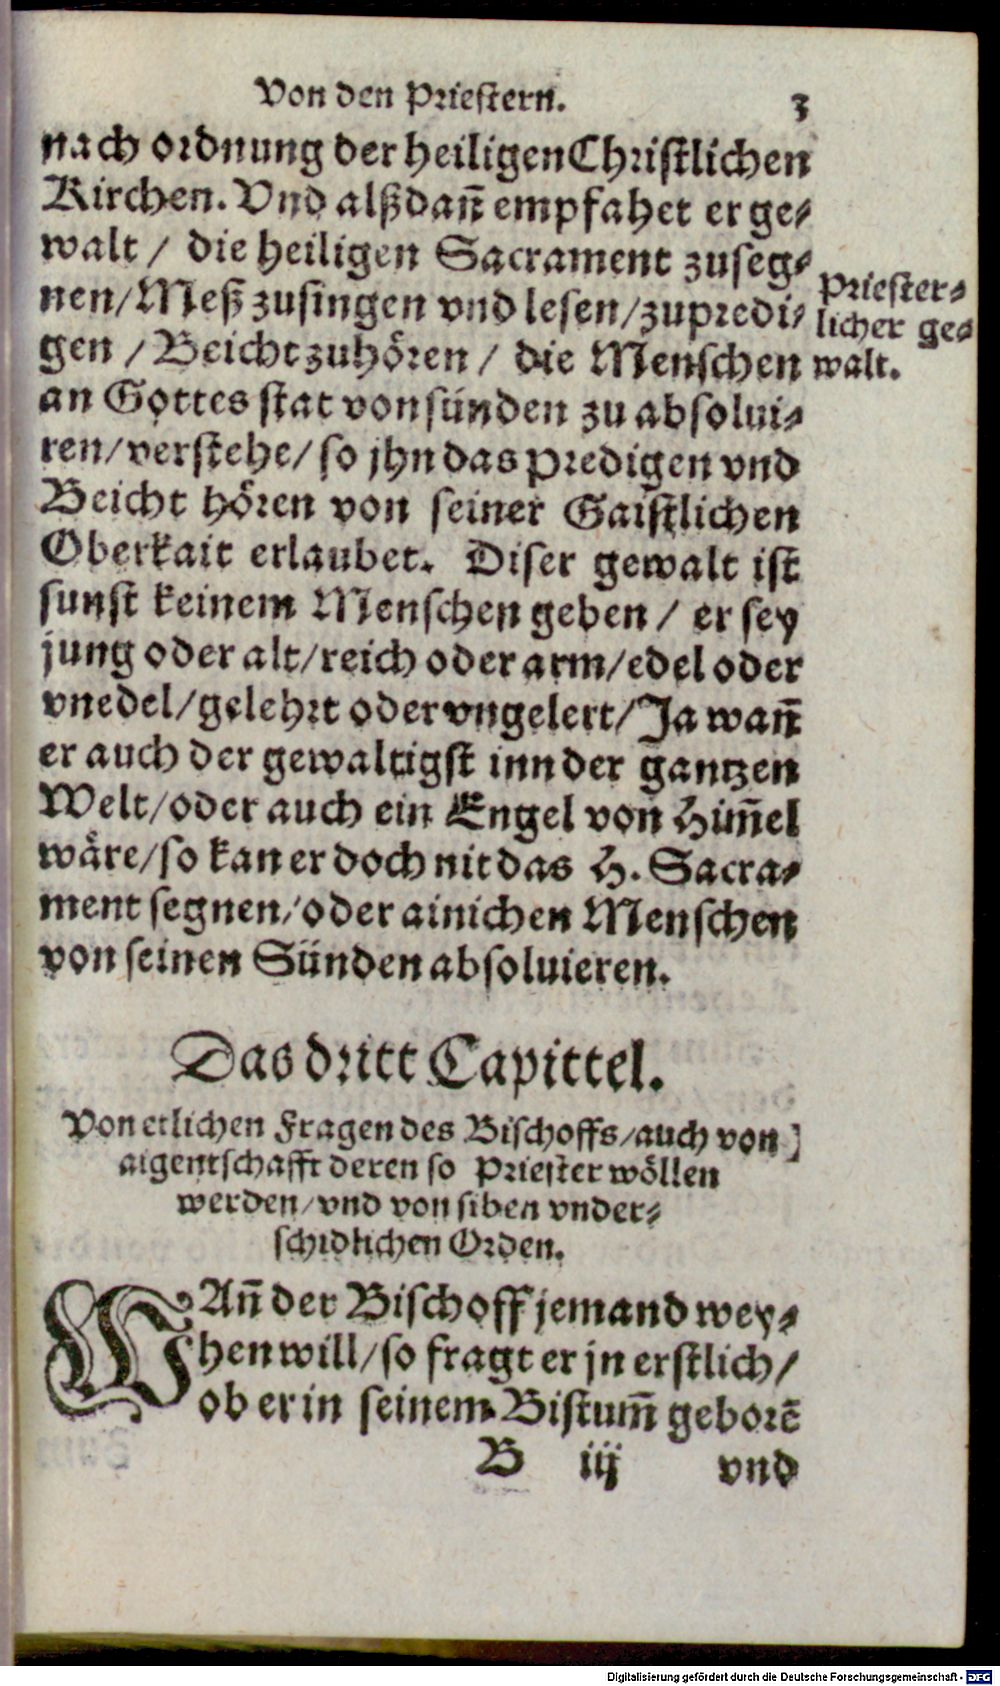 Von den Priestern. 3
nach ordnung der heiligen Christlichen
Kirchen. Vnd alßdañ empfahet er ge⸗
walt / die heiligen Sacrament zuseg⸗
nen/Meß zusingen vnd lesen/zupredi⸗
gen / Beicht zuhören / die Menschen
an Gottes stat von sünden zu absolui⸗
ren/verstehe/so jhn das predigen vnd
Beicht hören von seiner Gaistlichen
Oberkait erlaubet. Diser gewalt ist
sunst keinem Menschen geben / er sey
jung oder alt/reich oder arm/edel oder
vnedel/gelehrt oder vngelert/Ja wañ
er auch der gewaltigst inn der gantzen
Welt/oder auch ein Engel von Him̃el
wäre/so kan er doch nit das H. Sacra⸗
ment segnen/oder ainichen Menschen
von seinen Sünden absoluieren.
Priester⸗
licher ge⸗
walt.
Das dritt Capittel.
Von etlichen Fragen des Bischoffs/auch von
aigentschafft deren so Priester wöllen
werden/vnd von siben vnder⸗
schidlichen Orden.
WAñ der Bischoff jemand wey⸗
hen will/so fragt er jn erstlich/
ob er in seinem Bistum̃ geborẽ
B iij vnd
Digitalisierung gefördert durch die Deutsche Forschungsgemeinschaft - DFG